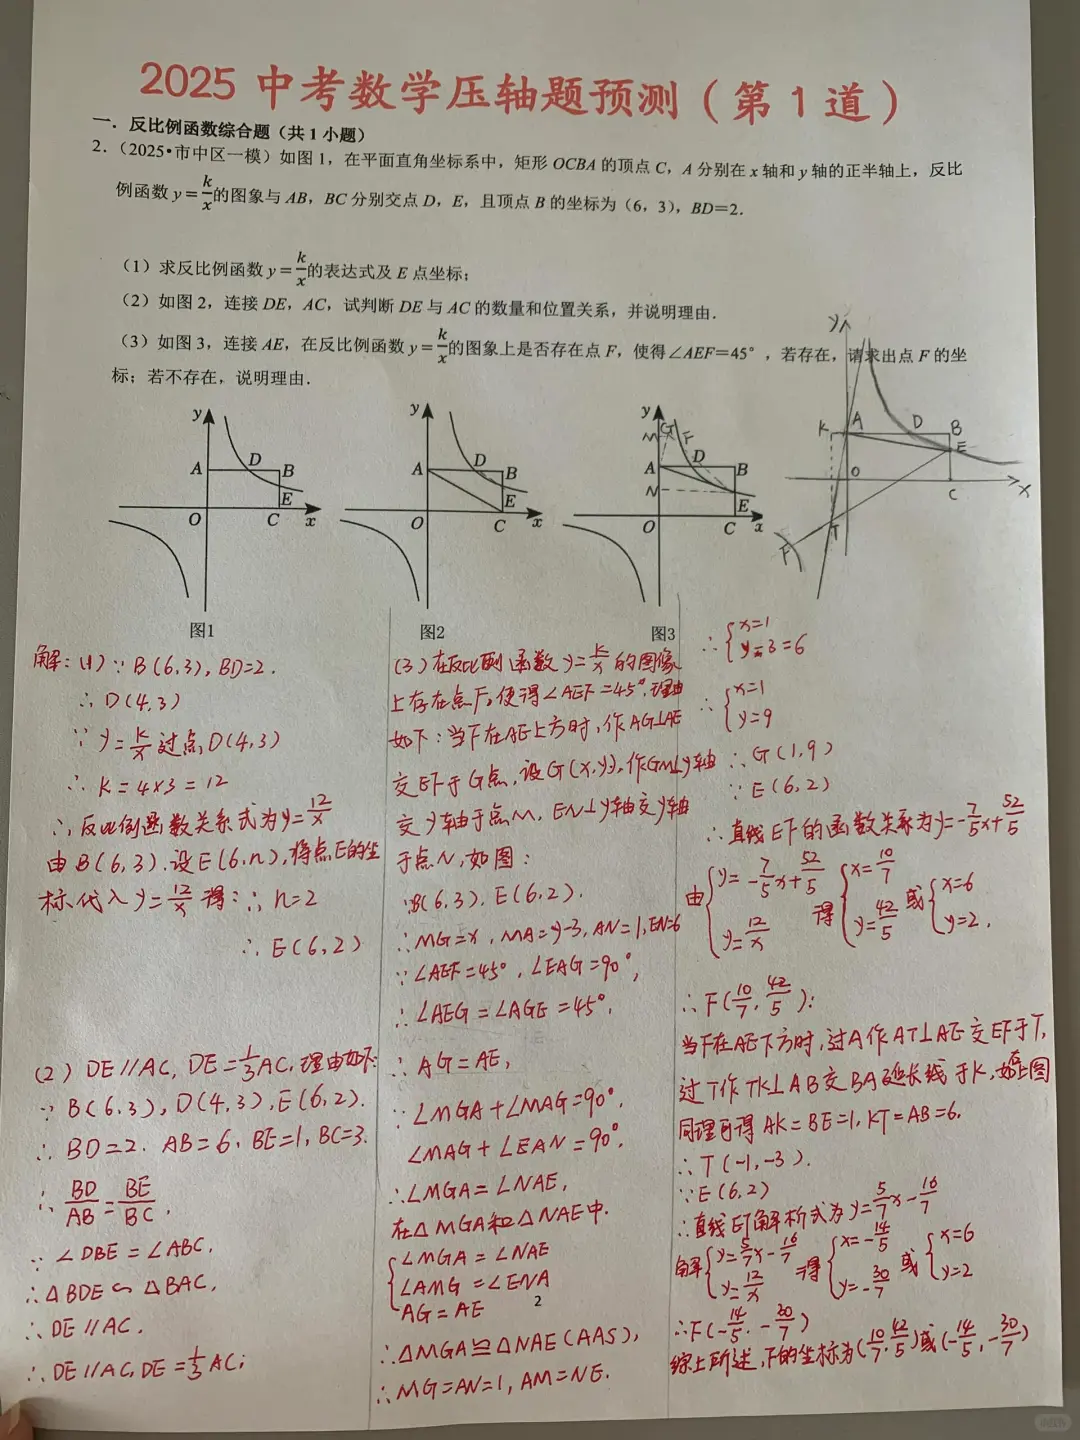 2025 中考数学压轴题预测（第 1 道）
一．反比例函数综合题（共 1 小题）
2．（2025•市中区一模）如图 1，在平面直角坐标系中，矩形 OCBA 的顶点 C，A 分别在 x 轴和 y 轴的正半轴上，反比
例函数 y=k/x的图象与 AB，BC 分别交点 D，E，且顶点 B 的坐标为（6，3），BD=2．
（1）求反比例函数 y=k/x的表达式及 E 点坐标；
（2）如图 2，连接 DE，AC，试判断 DE 与 AC 的数量和位置关系，并说明理由．
（3）如图 3，连接 AE，在反比例函数 y=k/x的图象上是否存在点 F，使得∠AEF=45°，若存在，请求出点 F 的坐
标；若不存在，说明理由．
y A D B E O C x
图1
y A D B E O C x
图2
y M G F A D B N E O C x
图3
y K A D B E O C x T F
解：(1) ∵ B(6,3), BD=2.
∴ D(4,3)
∵ y=k/x 过点 D(4,3)
∴ k=4×3=12
∴ 反比例函数关系式为 y=12/x
由 B(6,3).设E(6,n),将点E的坐
标代入 y=12/x 得：∴ n=2
∴ E(6,2)
(2) DE//AC, DE=1/3AC,理由如下:
∵ B(6,3), D(4,3), E(6,2).
∴ BD=2. AB=6, BE=1, BC=3.
∴ BD/AB=BE/BC,
∵ ∠DBE=∠ABC,
∴ △BDE∽△BAC,
∴ DE//AC.
∴ DE//AC, DE=1/3AC;
(3) 在反比例函数 y=k/x 的图像
上存在点F,使得∠AEF=45°,理由
如下：当F在AE上方时,作AG⊥AE
交EF于G点,设G(x,y),作GM⊥y轴
交y轴于点M, EN⊥y轴交y轴
于点N,如图：
∵B(6,3). E(6,2).
∴MG=x, MA=y-3, AN=1,EN=6
∵∠AEF=45°, ∠EAG=90°,
∴∠AEG=∠AGE=45°,
∴AG=AE,
∵∠MGA+∠MAG=90°,
∠MAG+∠EAN=90°.
∴∠MGA=∠NAE,
在△MGA和△NAE中.
{∠MGA=∠NAE
∠AMG=∠ENA
AG=AE
2
∴△MGA≌△NAE(AAS),
∴MG=AN=1, AM=NE.
∴{x=1
y-3=6
∴{x=1
y=9
∴G(1,9)
∵E(6,2)
∴直线EF的函数关系为y=-7/5x+52/5
由{y=-7/5x+52/5 y=12/x 得{x=10/7 y=42/5 或{x=6 y=2.
∴F(10/7, 42/5);
当F在AE下方时,过A作AT⊥AE交EF于T,
过T作TK⊥AB交BA延长线于K,如右上图
同理可得AK=BE=1, KT=AB=6.
∴T(-1,-3).
∵E(6,2)
∴直线ET解析式为y=5/7x-16/7
解{y=5/7x-16/7 y=12/x 得{x=-14/5 y=-30/7 或{x=6 y=2
∴F(-14/5, -30/7)
综上所述,F的坐标为(10/7,42/5)或(-14/5,-30/7)